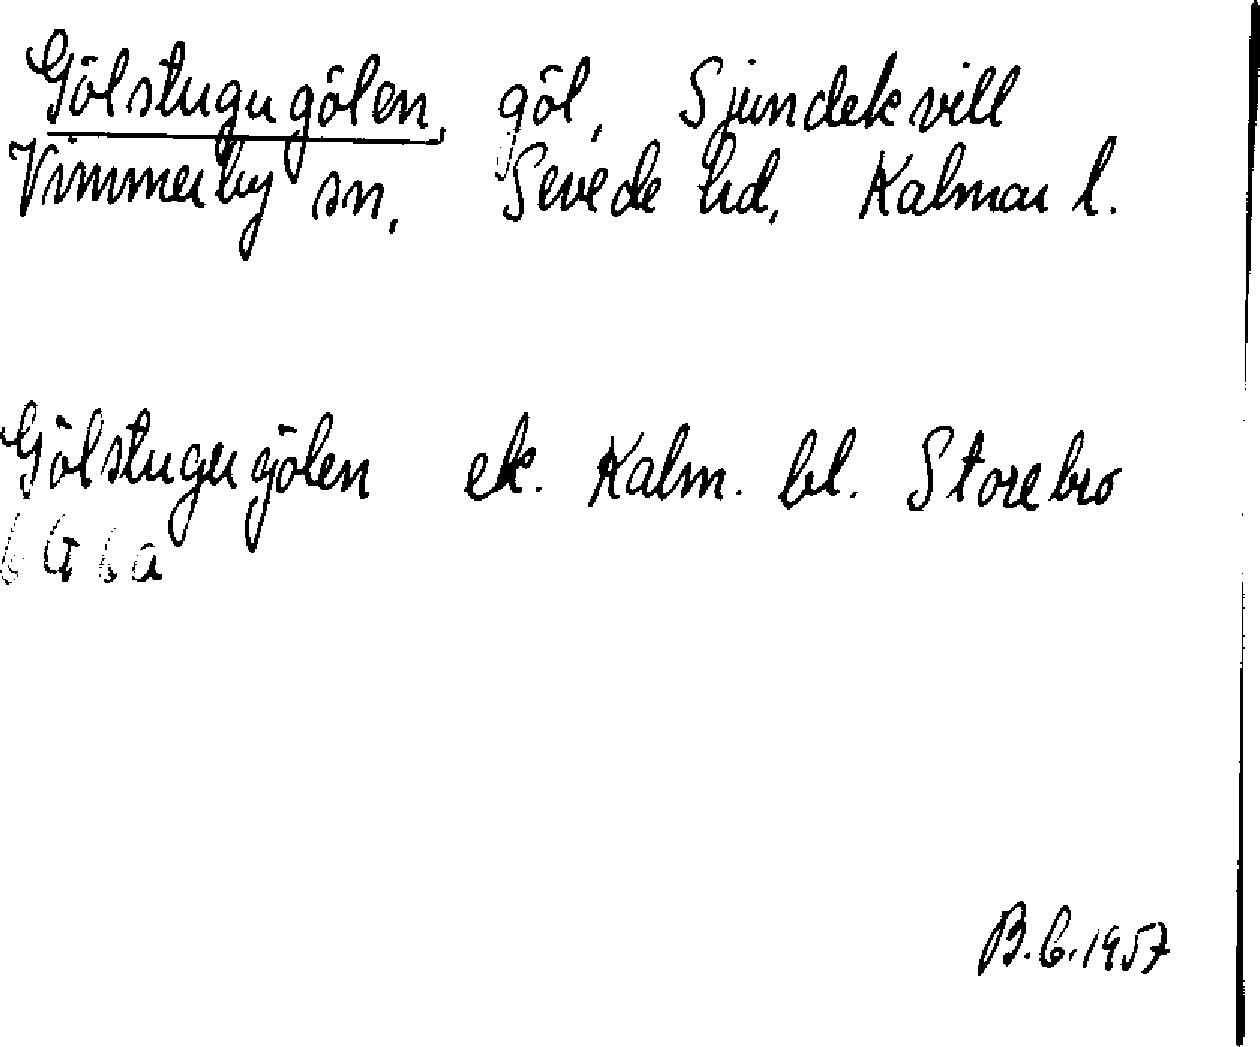 Gölstugugölen, göl, Sjundekvill
Vimmerby sn, Sevede hd, Kalmar l.
Gölstugugölen ek. Kalm. bl. Storebro
6G6a
B.G.1957